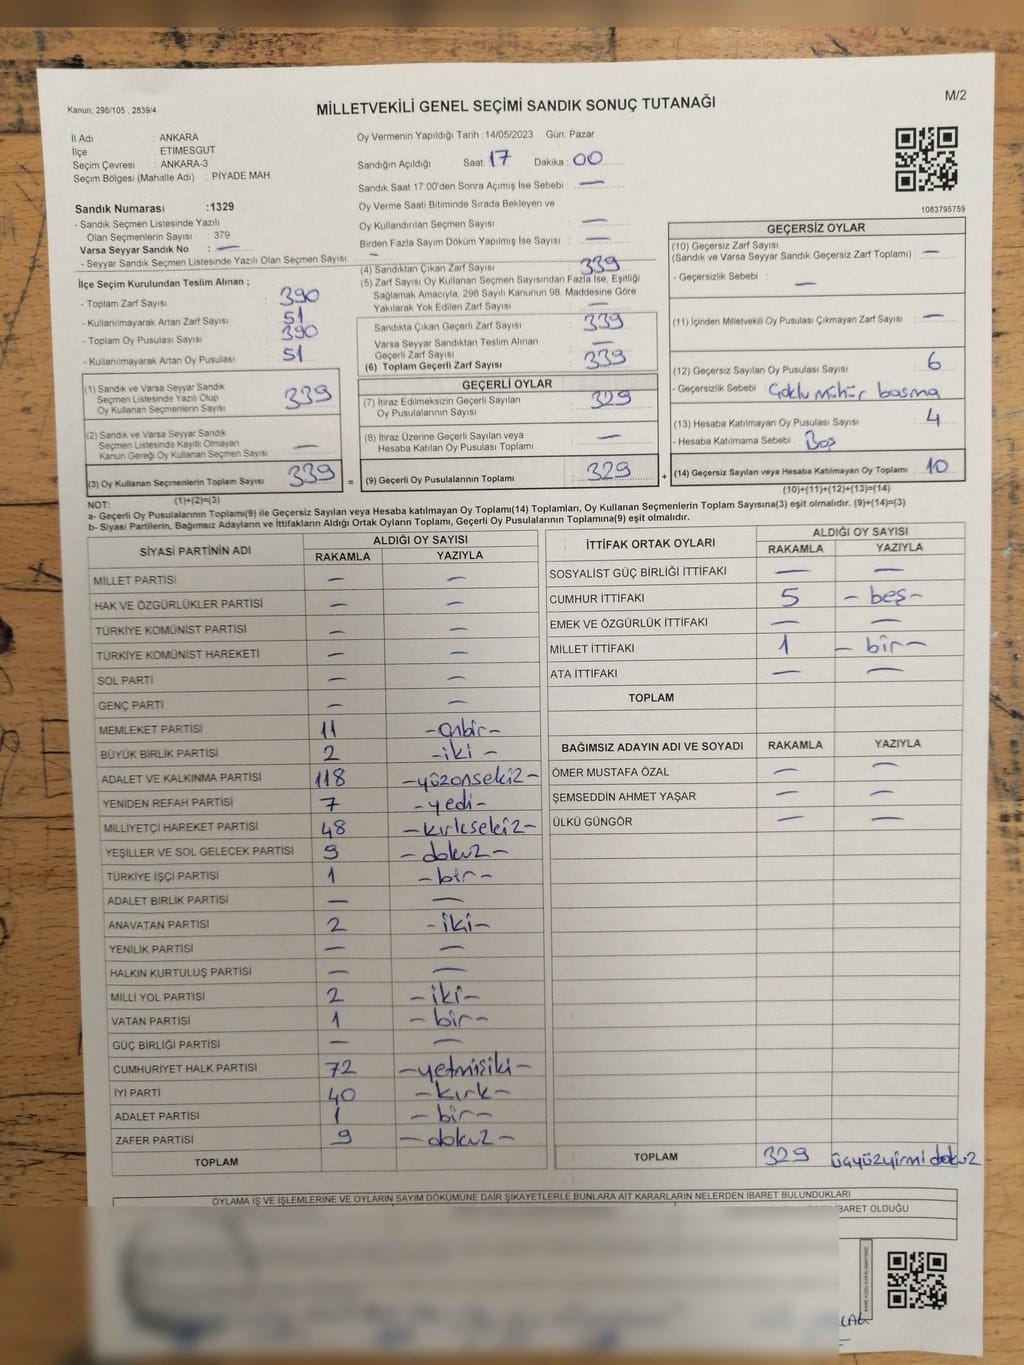 Kanun; 298/105 , 2839/4
MİLLETVEKİLİ GENEL SEÇİMİ SANDIK SONUÇ TUTANAĞI
M/2
İl Adı : ANKARA
İlçe : ETİMESGUT
Seçim Çevresi : ANKARA-3
Seçim Bölgesi (Mahalle Adı) : PİYADE MAH.
Sandık Numarası :1329
- Sandık Seçmen Listesinde Yazılı
Olan Seçmenlerin Sayısı : 379
Varsa Seyyar Sandık No : —
- Seyyar Sandık Seçmen Listesinde Yazılı Olan Seçmen Sayısı: —
Oy Vermenin Yapıldığı Tarih :14/05/2023 Gün: Pazar
Sandığın Açıldığı Saat: 17 Dakika : 00
Sandık Saat 17:00'den Sonra Açımış İse Sebebi : —
Oy Verme Saati Bitiminde Sırada Bekleyen ve
Oy Kullandırılan Seçmen Sayısı : —
Birden Fazla Sayım Döküm Yapılmış İse Sayısı : —
1083795759
İlçe Seçim Kurulundan Teslim Alınan ;
- Toplam Zarf Sayısı : 390
- Kullanılmayarak Artan Zarf Sayısı : 51
- Toplam Oy Pusulası Sayısı : 390
- Kullanılmayarak Artan Oy Pusulası : 51
(1) Sandık ve Varsa Seyyar Sandık
Seçmen Listesinde Yazılı Olup
Oy Kullanan Seçmenlerin Sayısı : 339
(2) Sandık ve Varsa Seyyar Sandık
Seçmen Listesinde Kayıtlı Olmayan
Kanun Gereği Oy Kullanan Seçmen Sayısı : —
(3) Oy Kullanan Seçmenlerin Toplam Sayısı : 339
(1)+(2)=(3)
(4) Sandıktan Çıkan Zarf Sayısı : 339
(5) Zarf Sayısı Oy Kullanan Seçmen Sayısından Fazla İse, Eşitliği
Sağlamak Amacıyla, 298 Sayılı Kanunun 98. Maddesine Göre
Yakılarak Yok Edilen Zarf Sayısı : —
Sandıkta Çıkan Geçerli Zarf Sayısı : 339
Varsa Seyyar Sandıktan Teslim Alınan
Geçerli Zarf Sayısı : —
(6) Toplam Geçerli Zarf Sayısı : 339
GEÇERLİ OYLAR
(7) İtiraz Edilmeksizin Geçerli Sayılan
Oy Pusulalarının Sayısı : 329
(8) İtiraz Üzerine Geçerli Sayılan veya
Hesaba Katılan Oy Pusulası Toplamı : —
= (9) Geçerli Oy Pusulalarının Toplamı : 329 +
GEÇERSİZ OYLAR
(10) Geçersiz Zarf Sayısı
(Sandık ve Varsa Seyyar Sandık Geçersiz Zarf Toplamı) : —
- Geçersizlik Sebebi : —
(11) İçinden Milletvekili Oy Pusulası Çıkmayan Zarf Sayısı : —
(12) Geçersiz Sayılan Oy Pusulası Sayısı : 6
- Geçersizlik Sebebi : Çoklu mühür basma
(13) Hesaba Katılmayan Oy Pusulası Sayısı : 4
- Hesaba Katılmama Sebebi : Boş
(14) Geçersiz Sayılan veya Hesaba Katılmayan Oy Toplamı : 10
(10)+(11)+(12)+(13)=(14)
NOT:
a- Geçerli Oy Pusulalarının Toplamı(9) ile Geçersiz Sayılan veya Hesaba Katılmayan Oy Toplamı(14) Toplamları, Oy Kullanan Seçmenlerin Toplam Sayısına(3) eşit olmalıdır. (9)+(14)=(3)
b- Siyasi Partilerin, Bağımsız Adayların ve İttifakların Aldığı Ortak Oyların Toplamı, Geçerli Oy Pusulalarının Toplamına(9) eşit olmalıdır.
SİYASİ PARTİNİN ADI ALDIĞI OY SAYISI
RAKAMLA YAZIYLA
MİLLET PARTİSİ — —
HAK VE ÖZGÜRLÜKLER PARTİSİ — —
TÜRKİYE KOMÜNİST PARTİSİ — —
TÜRKİYE KOMÜNİST HAREKETİ — —
SOL PARTİ — —
GENÇ PARTİ — —
MEMLEKET PARTİSİ 11 -onbir-
BÜYÜK BİRLİK PARTİSİ 2 -iki-
ADALET VE KALKINMA PARTİSİ 118 -yüzonsekiz-
YENİDEN REFAH PARTİSİ 7 -yedi-
MİLLİYETÇİ HAREKET PARTİSİ 48 -kırksekiz-
YEŞİLLER VE SOL GELECEK PARTİSİ 9 -dokuz-
TÜRKİYE İŞÇİ PARTİSİ 1 -bir-
ADALET BİRLİK PARTİSİ — —
ANAVATAN PARTİSİ 2 -iki-
YENİLİK PARTİSİ — —
HALKIN KURTULUŞ PARTİSİ — —
MİLLİ YOL PARTİSİ 2 -iki-
VATAN PARTİSİ 1 -bir-
GÜÇ BİRLİĞİ PARTİSİ — —
CUMHURİYET HALK PARTİSİ 72 -yetmişiki-
İYİ PARTİ 40 -kırk-
ADALET PARTİSİ 1 -bir-
ZAFER PARTİSİ 9 -dokuz-
TOPLAM
İTTİFAK ORTAK OYLARI ALDIĞI OY SAYISI
RAKAMLA YAZIYLA
SOSYALİST GÜÇ BİRLİĞİ İTTİFAKI — —
CUMHUR İTTİFAKI 5 -beş-
EMEK VE ÖZGÜRLÜK İTTİFAKI — —
MİLLET İTTİFAKI 1 -bir-
ATA İTTİFAKI — —
TOPLAM
BAĞIMSIZ ADAYIN ADI VE SOYADI RAKAMLA YAZIYLA
ÖMER MUSTAFA ÖZAL — —
ŞEMSEDDİN AHMET YAŞAR — —
ÜLKÜ GÜNGÖR — —
TOPLAM 329 üçyüzyirmidokuz
OYLAMA İŞ VE İŞLEMLERİNE VE OYLARIN SAYIM DÖKÜMÜNE DAİR ŞİKAYETLERLE BUNLARA AİT KARARLARIN NELERDEN İBARET BULUNDUKLARI
İBARET OLDUĞU